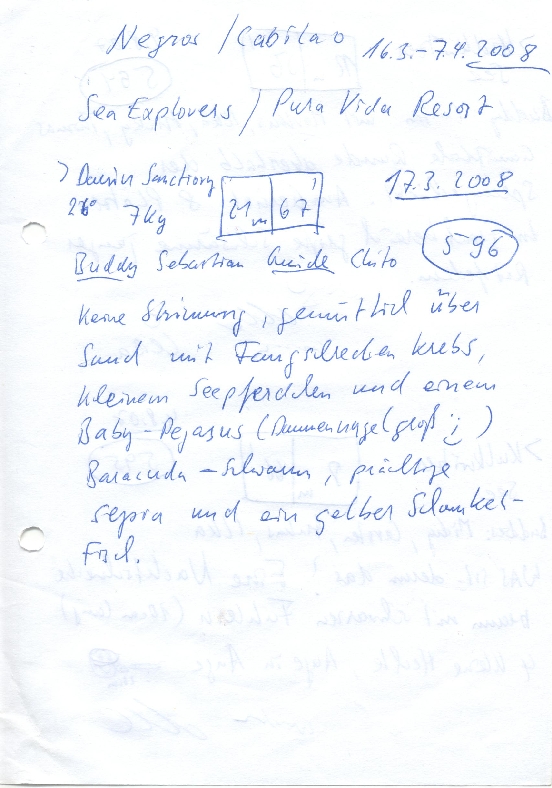 Negros / Cabilao 16.3.-7.4.2008
Sea Explorers / Pura Vida Resort
> Dauin Sanctiory 17.3.2008
26° 7kg 21m 67' 596
Buddy Sebastian Guide Chito
Keine Strömung, gemütlich über
Sand mit Fangschrecken krebs,
kleinem Seepferdchen und einem
Baby-Pegasus (Daumennagelgroß :)
Baracuda-Schwarm, prächtige
Sepia und ein gelber Schaukel-
Fisch.